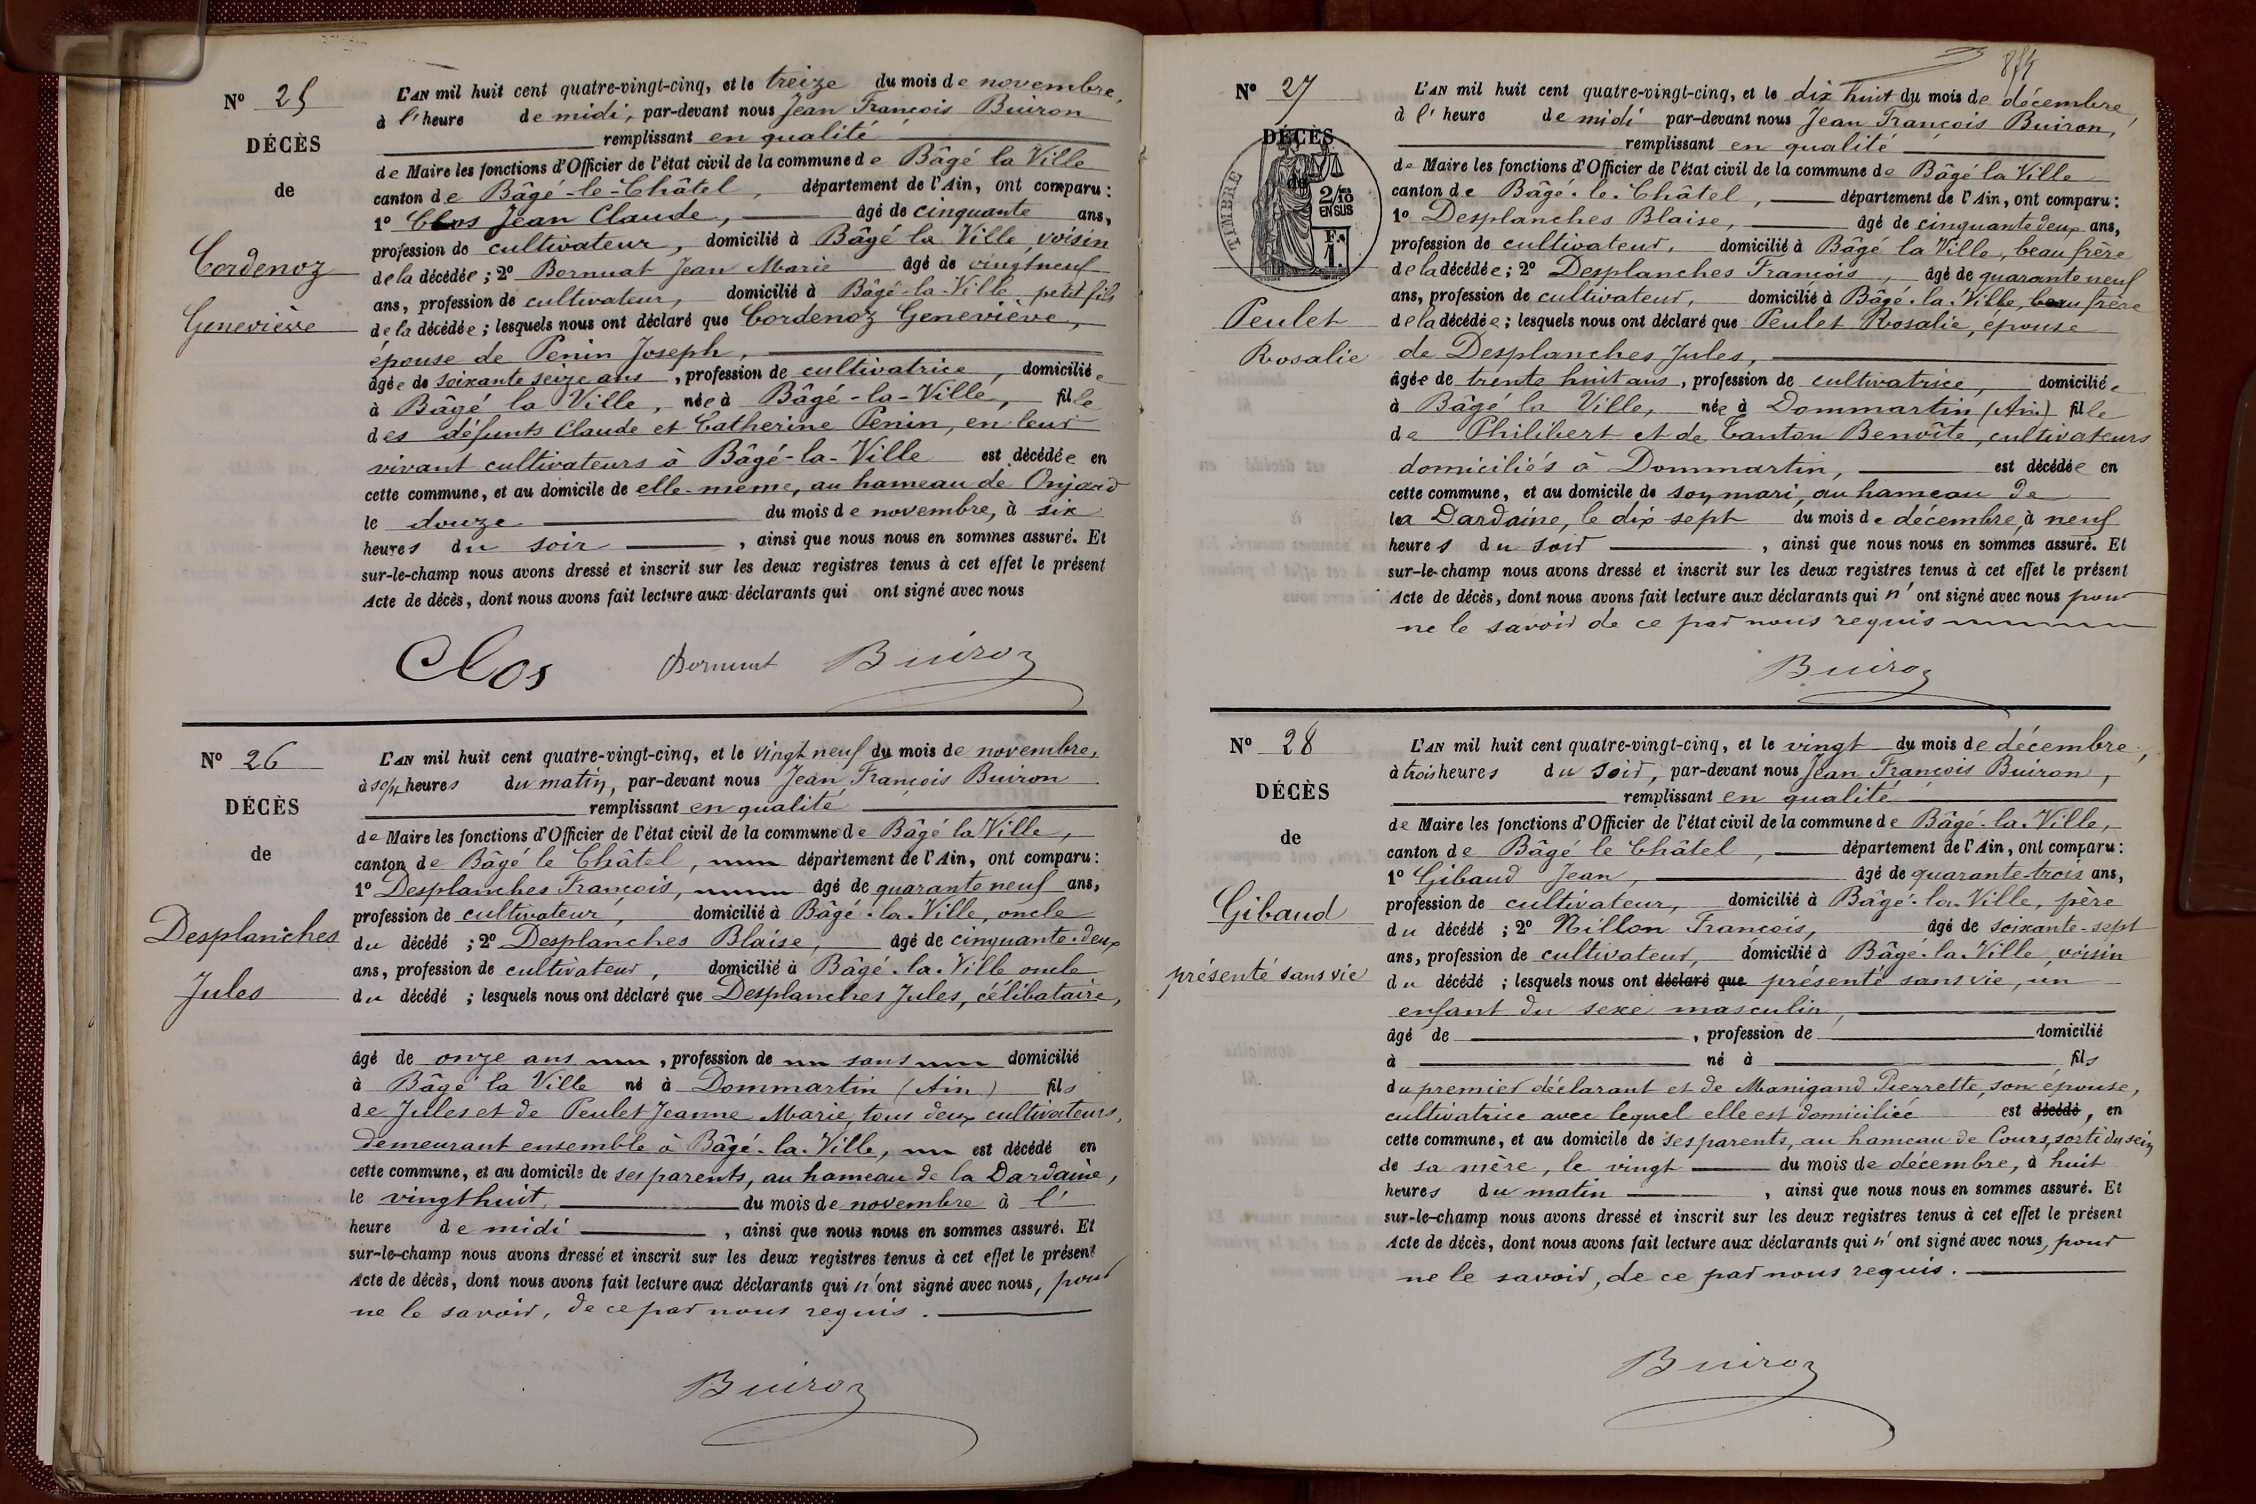 N° 25
DÉCÈS
de
Cordenoz
Geneviève
L'AN mil huit cent quatre-vingt-cinq, et le treize du mois de novembre,
à l'heure de midi, par-devant nous Jean François Buiron
remplissant en qualité
de Maire les fonctions d'Officier de l'état civil de la commune de Bâgé la Ville
canton de Bâgé-le-Châtel, département de l'Ain, ont comparu :
1° Clos Jean Claude, âgé de cinquante ans,
profession de cultivateur, domicilié à Bâgé la Ville, voisin
de la décédée ; 2° Bernuat Jean Marie âgé de vingt neuf
ans, profession de cultivateur, domicilié à Bâgé-la-Ville petit fils
de la décédée ; lesquels nous ont déclaré que Cordenoz Geneviève,
épouse de Penin Joseph,
âgée de soixante seize ans, profession de cultivatrice, domiciliée
à Bâgé la Ville, née à Bâgé-la-Ville, fille
des défunts Claude et Catherine Penin, en leur
vivant cultivateurs à Bâgé-la-Ville est décédée en
cette commune, et au domicile de elle-même, au hameau de Onjard
le douze du mois de novembre, à six
heures du soir, ainsi que nous nous en sommes assuré. Et
sur-le-champ nous avons dressé et inscrit sur les deux registres tenus à cet effet le présent
Acte de décès, dont nous avons fait lecture aux déclarants qui ont signé avec nous
Clos Bernuat Buiron
N° 26
DÉCÈS
de
Desplanches
Jules
L'AN mil huit cent quatre-vingt-cinq, et le vingt neuf du mois de novembre,
à heures du matin, par-devant nous Jean François Buiron
remplissant en qualité
de Maire les fonctions d'Officier de l'état civil de la commune de Bâgé la Ville,
canton de Bâgé le Châtel, département de l'Ain, ont comparu :
1° Desplanches François, âgé de quarante neuf ans,
profession de cultivateur, domicilié à Bâgé-la-Ville, oncle
du décédé ; 2° Desplanches Blaise, âgé de cinquante-deux
ans, profession de cultivateur, domicilié à Bâgé-la-Ville oncle
du décédé ; lesquels nous ont déclaré que Desplanches Jules, célibataire,
âgé de onze ans, profession de sans domicilié
à Bâgé la Ville né à Dommartin (Ain) fils
de Jules et de Peulet Jeanne Marie, tous deux cultivateurs,
demeurant ensemble à Bâgé-la-Ville, est décédé en
cette commune, et au domicile de ses parents, au hameau de la Dardaine,
le vingt huit, du mois de novembre à l'
heure de midi, ainsi que nous nous en sommes assuré. Et
sur-le-champ nous avons dressé et inscrit sur les deux registres tenus à cet effet le présent
Acte de décès, dont nous avons fait lecture aux déclarants qui n'ont signé avec nous, pour
ne le savoir, de ce par nous requis.
Buiron
N° 27
DÉCÈS
de
TIMBRE
2/10
EN SUS
F. 1.
Peulet
Rosalie
L'AN mil huit cent quatre-vingt-cinq, et le dix huit du mois de décembre,
à l'heure de midi par-devant nous Jean François Buiron,
remplissant en qualité
de Maire les fonctions d'Officier de l'état civil de la commune de Bâgé la Ville
canton de Bâgé-le-Châtel, département de l'Ain, ont comparu :
1° Desplanches Blaise, âgé de cinquante deux ans,
profession de cultivateur, domicilié à Bâgé la Ville, beau frère
de la décédée ; 2° Desplanches François, âgé de quarante neuf
ans, profession de cultivateur, domicilié à Bâgé-la-Ville, beau frère
de la décédée ; lesquels nous ont déclaré que Peulet Rosalie, épouse
de Desplanches Jules,
âgée de trente huit ans, profession de cultivatrice, domiciliée
à Bâgé la Ville, née à Dommartin (Ain) fille
de Philibert et de Tanton Benoîte, cultivateurs
domiciliés à Dommartin, est décédée en
cette commune, et au domicile de son mari, au hameau de
la Dardaine, le dix sept du mois de décembre, à neuf
heures du soir, ainsi que nous nous en sommes assuré. Et
sur-le-champ nous avons dressé et inscrit sur les deux registres tenus à cet effet le présent
Acte de décès, dont nous avons fait lecture aux déclarants qui n'ont signé avec nous pour
ne le savoir de ce par nous requis
Buiron
N° 28
DÉCÈS
de
Gibaud
présenté sans vie
L'AN mil huit cent quatre-vingt-cinq, et le vingt du mois de décembre,
à trois heures du soir, par-devant nous Jean François Buiron,
remplissant en qualité
de Maire les fonctions d'Officier de l'état civil de la commune de Bâgé-la-Ville,
canton de Bâgé le Châtel, département de l'Ain, ont comparu :
1° Gibaud Jean, âgé de quarante-trois ans,
profession de cultivateur, domicilié à Bâgé-la-Ville, père
du décédé ; 2° Nillon François, âgé de soixante-sept
ans, profession de cultivateur, domicilié à Bâgé-la-Ville, voisin
du décédé ; lesquels nous ont déclaré que présenté sans vie, un
enfant du sexe masculin,
âgé de, profession de domicilié
à né à fils
du premier déclarant et de Manigand Pierrette, son épouse,
cultivatrice avec lequel elle est domiciliée est décédé, en
cette commune, et au domicile de ses parents, au hameau de Cours, sorti du sein
de sa mère, le vingt du mois de décembre, à huit
heures du matin, ainsi que nous nous en sommes assuré. Et
sur-le-champ nous avons dressé et inscrit sur les deux registres tenus à cet effet le présent
Acte de décès, dont nous avons fait lecture aux déclarants qui n'ont signé avec nous, pour
ne le savoir, de ce par nous requis.
Buiron